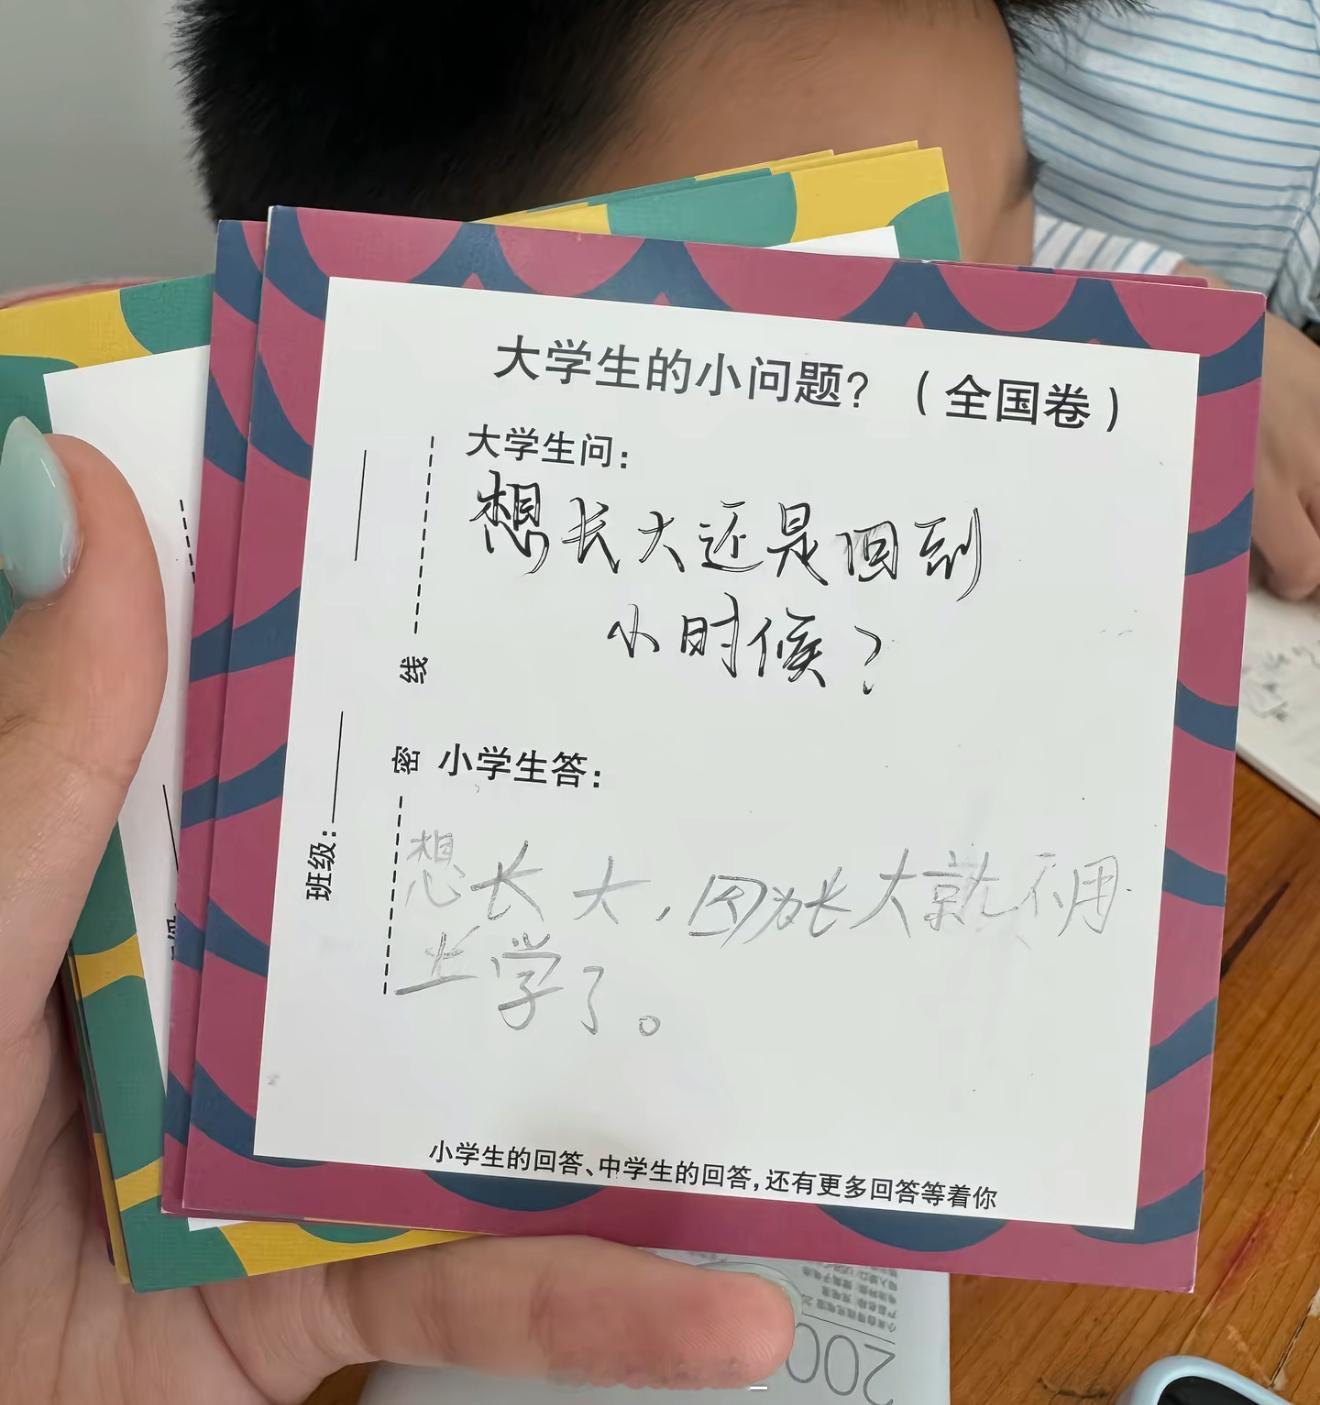 大学生的小问题？（全国卷）
大学生问：
想长大还是回到
小时候？
线
密
班级：
小学生答：
想长大，因为长大就不用
上学了。
小学生的回答、中学生的回答，还有更多回答等着你
200